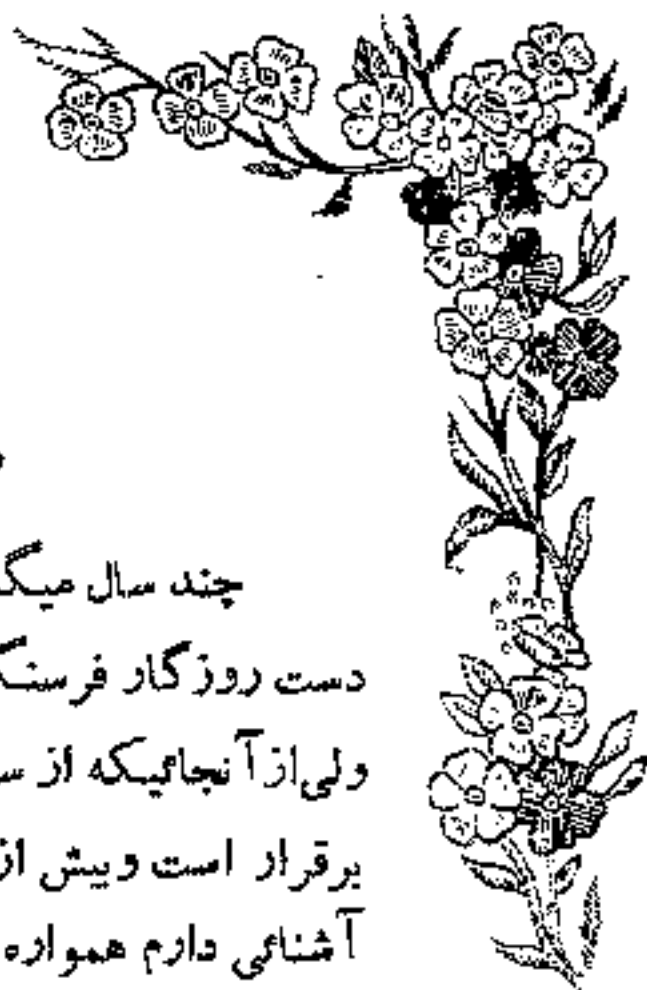 چند سال میگ
دست روزگار فرسنگ
ولی از آنجائیکه از س
برقرار است و بیش از
آشنائی دارم همواره